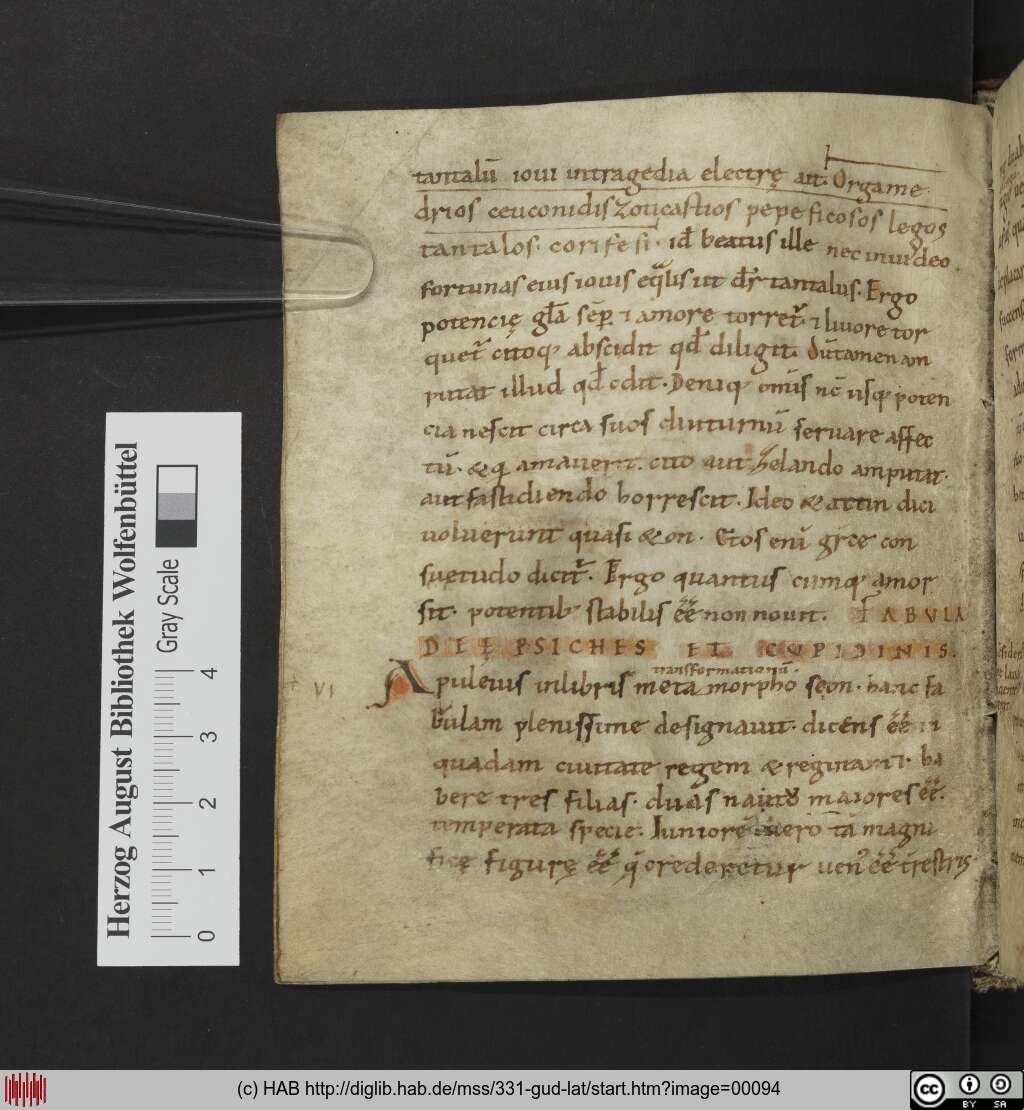 tantalū ioui intragedia electrę ait. Orgame
drios ceuconidiszoucastios pepeficosos legos
tantalos. corifesi. id̄ beatus ille nec inuideo
fortunas eius iouis eq̄lis ut dr̄ tantalus. Ergo
potencię gl̄a sēp̄ ⁊ amore torret᷑. ⁊ liuore tor
quet᷑ citoq; abscidit qd̄ diligit. dū tamen am
putat illud qd̄ odit. Deniq; om̄is nc̄ usq; poten
cia nescit circa suos diuturnū seruare affec
tū. & q amauerit. cito aut zelando amputat.
aut fastidiendo horrescit. Ideo & attin dici
uoluerunt quasi &on. Etos enī grce con
suetudo dicit᷑. Ergo quantus cumq; amor
sit. potentib; stabilis ēē non nouit. FABVLA
DEĘ PSICHES ET CVPIDINIS.
VI
transformationū.
Apuleius inlibris meta morpho seon. hanc fa
bulam plenissime designauit. dicens ēē in
quadam ciuitate regem & reginam. ha
bere tres filias. duas natu maiores ēē.
temperata specie. Iuniorē uero tā magni
ficę figurę ēē q crederetur uen᷒ ēē tr̄estris
Herzog August Bibliothek Wolfenbüttel
Gray Scale
0 1 2 3 4
(c) HAB http://diglib.hab.de/mss/331-gud-lat/start.htm?image=00094
cc BY SA